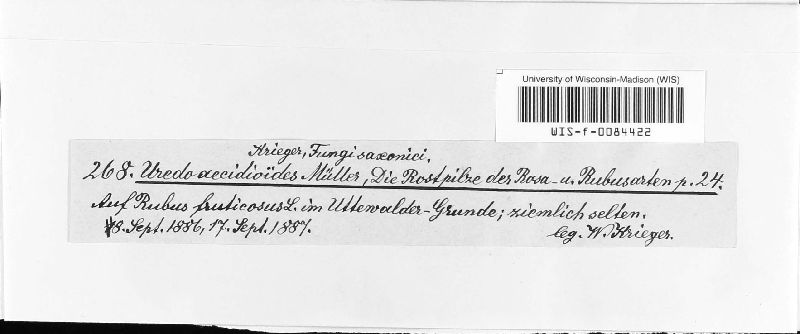 University of Wisconsin-Madison (WIS)
WIS-f-0084422
Krieger, Fungi saxonici.
268. Uredo aecidioïdes Müller, Die Rostpilze der Rosa- u. Rubusarten p. 24.
Auf Rubus fruticosus L. im Uttewalder-Grunde; ziemlich selten.
18. Sept. 1886, 17. Sept. 1887.
leg. W. Krieger.